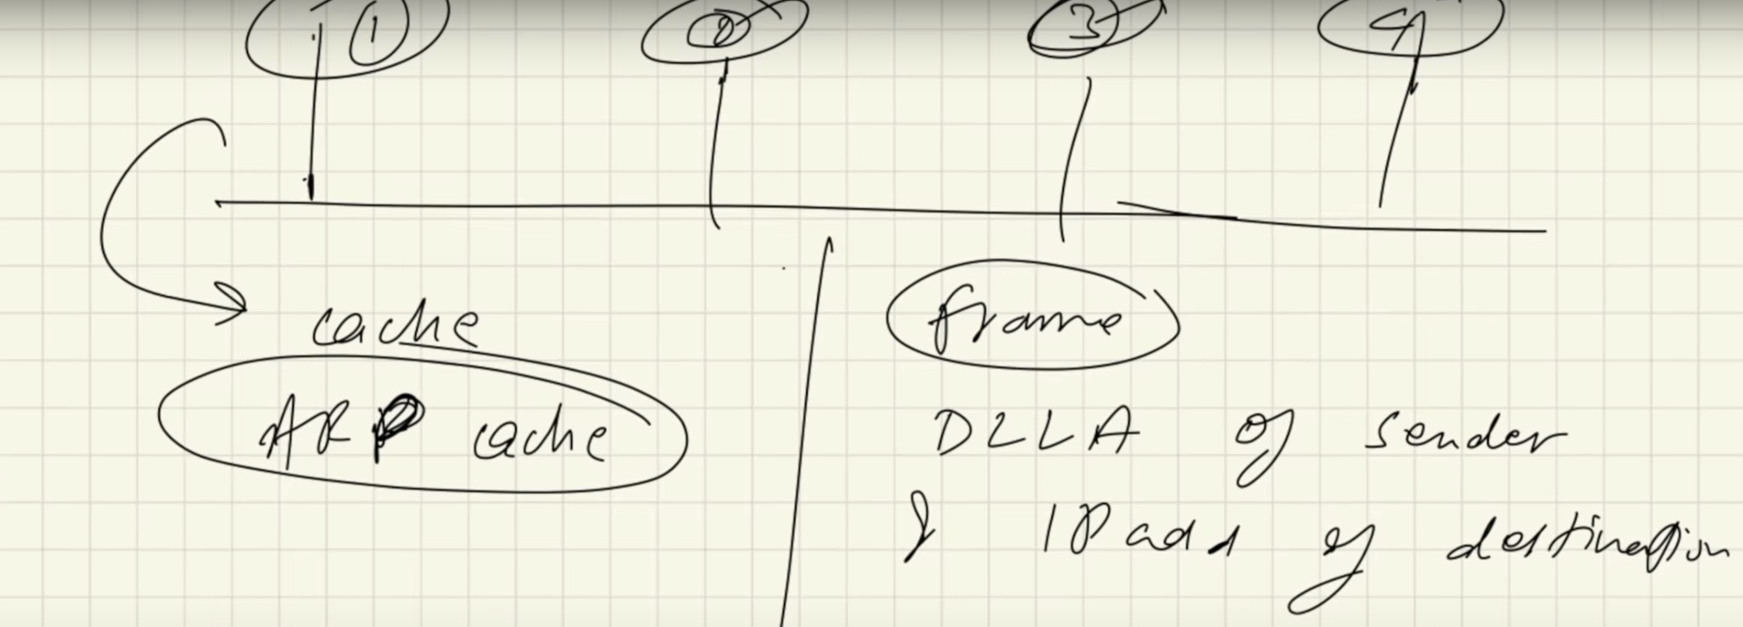 1 2 3 4
cache
ARP cache
frame
DLLA of sender
& IP add of destination